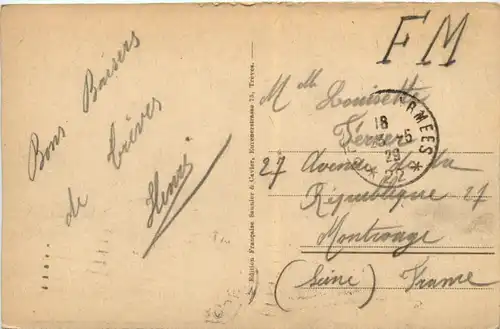 Bons Baisers
de Trèves
Henri
Edition Française Saunier & Cavier, Rommerstrasse 15, Treves.
FM
Mlle Louisette
27 Avenue de la
République 27
Montrouge
(Seine) France
ARMEES
18
5
29
* 22 *